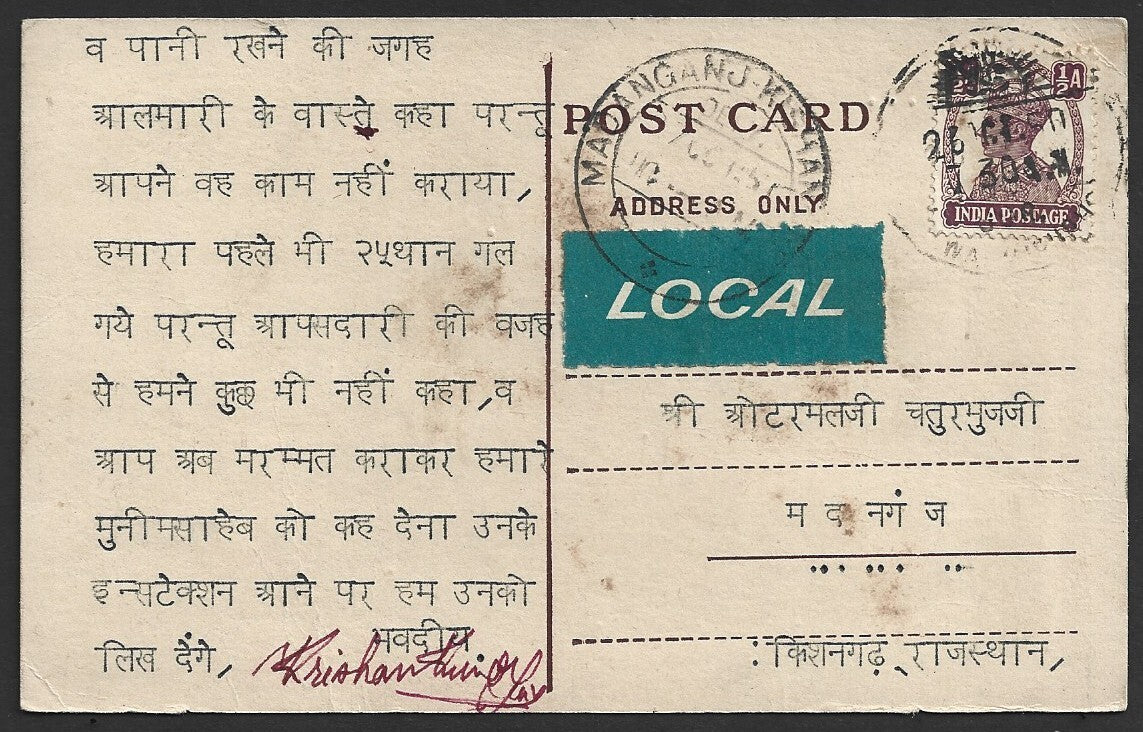 व पानी रखने की जगह
आलमारी के वास्ते कहा परन्तू
आपने वह काम नहीं कराया,
हमारा पहले भी २५थान गल
गये परन्तू आपसदारी की वजह
से हमने कुछ भी नहीं कहा,व
आप अब मरम्मत कराकर हमारे
मुनीमसाहेब को कह देना उनके
इन्सटेक्शन आने पर हम उनको
लिख देंगे,
भवदीय
Krishan
POST CARD
ADDRESS ONLY
LOCAL
½A
INDIA POSTAGE
श्री ओटरमलजी चतुरभुजजी
म द नगं ज
:किशनगढ़,राजस्थान,